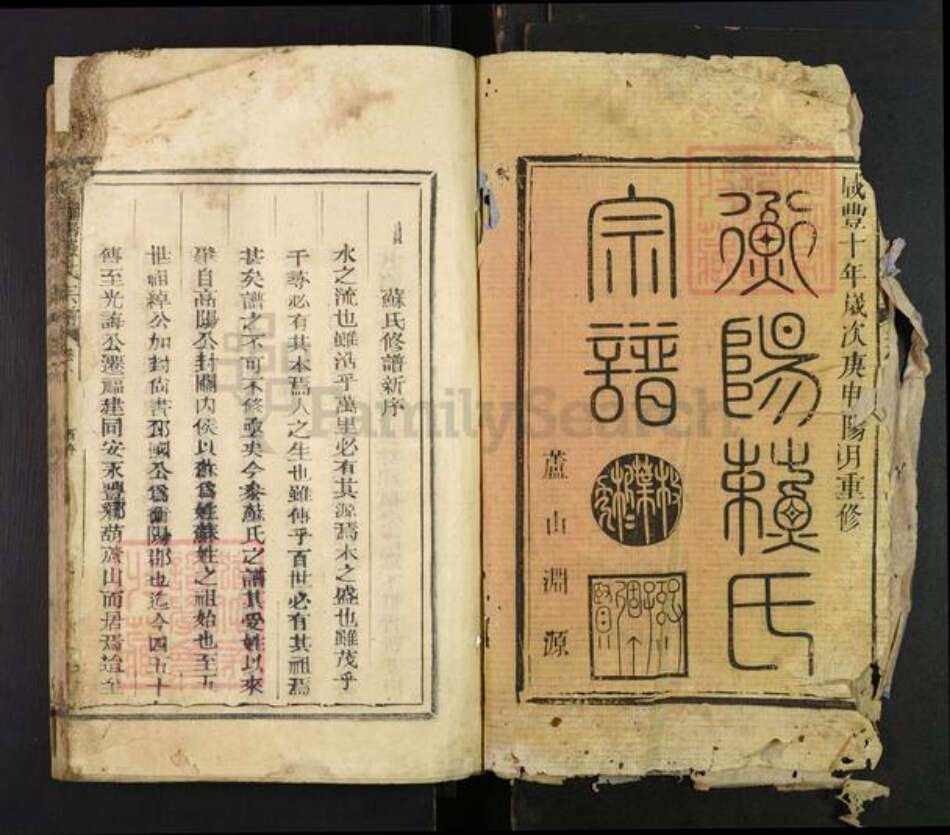 咸豐十年歲次庚申陽月重修
衡陽蘇氏
宗譜
蘆山淵源
蘇氏修譜新序
水之流也雖沿乎萬里必有其源焉木之盛也雖茂乎
千尋必有其本焉人之生也雖傳乎百世必有其祖焉
甚矣譜之不可不修也矣今蘇氏之譜其受姓以來
自高陽公封關內侯以蘇爲姓蘇姓之祖始也至五
世祖綽公加封尚書邳國公爲衡陽郡也迄今四五十
傳至光誨公遷福建同安永豐鄉葫蘆山而居焉迨至
FamilySearch